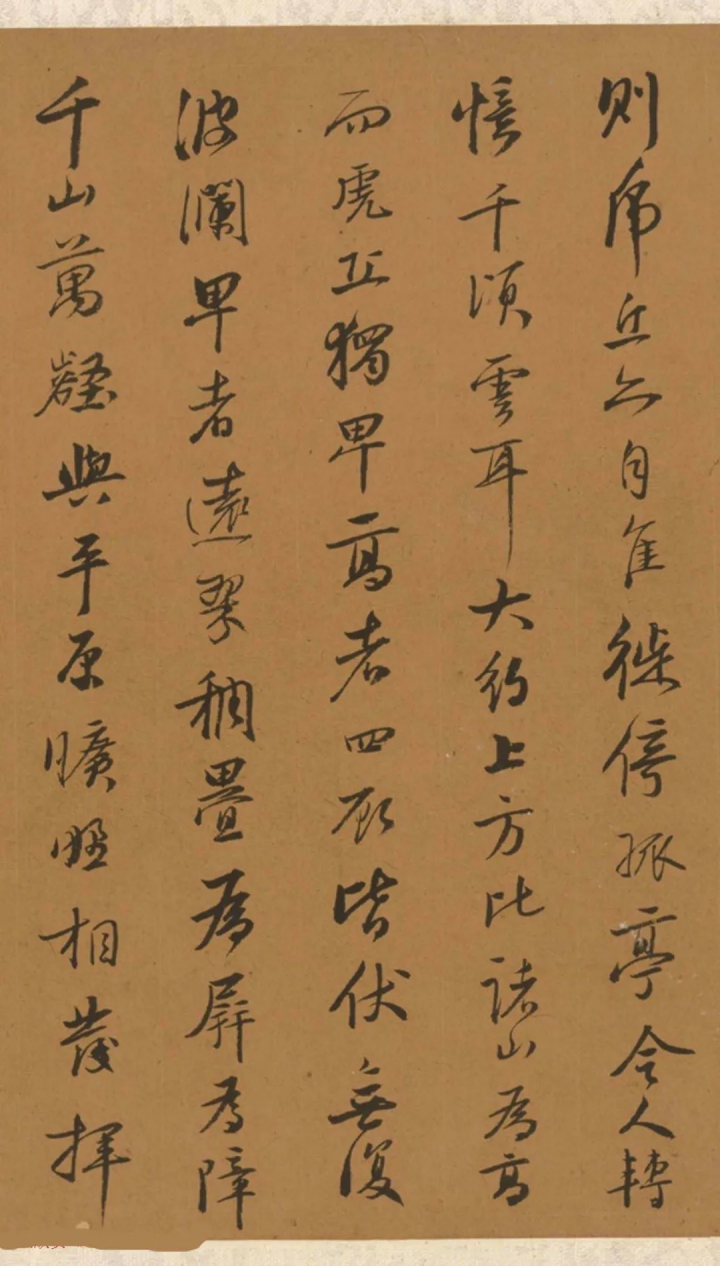 則虎丘亦自佳徙倚孤亭令人轉
憶千頃雲耳大約上方比諸山為高
而虎丘獨卑高者四顾皆伏無復
波瀾卑者遠翠稠疊為屏為障
千山萬壑與平原曠野相發揮